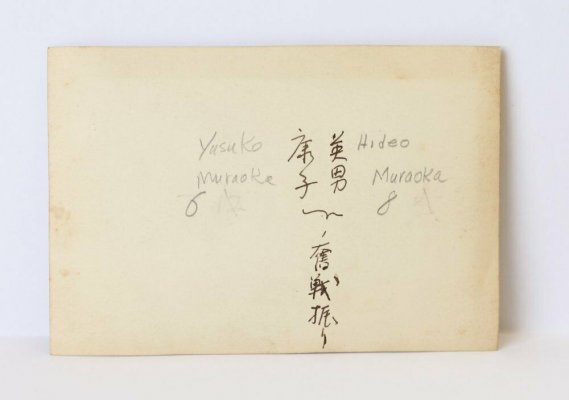 英男
康子
ノ奮戦振り
Hideo
Muraoka
8
Yasuko
Muraoka
6